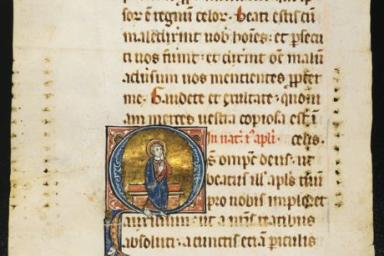 sor ē regnum celor. Beati estis cū
maledixrint vob hoīes: et psecu
ti vos fuint: et dixrint om malū
adusum vos mentientes ppter
me. Gaudete et exultate. quoni
am merces vestra copiosa est ī
In nat. i. apli. celis.
s omps deus. ut
beatus ill apls tuus
pro nobis imploret
auxilium. ut a nris reatibus
absoluti. a cunctis etiā piculis